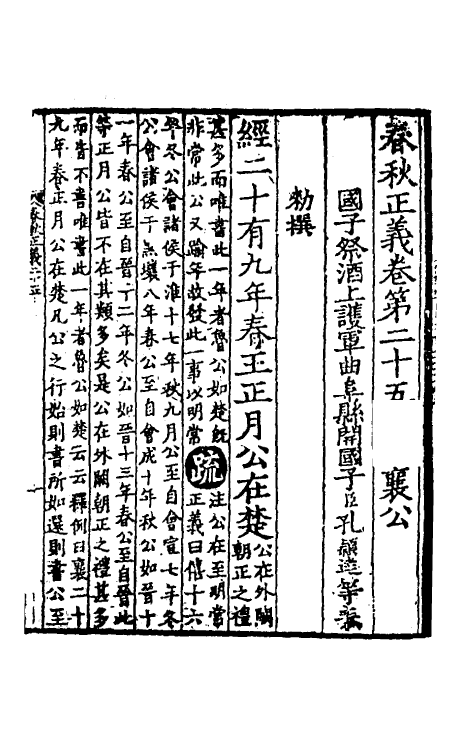 春秋正義卷第二十五　襄公
國子祭酒上護軍曲阜縣開國子臣孔穎達等奉
勑撰
經二十有九年春王正月公在楚公在外闕
朝正之禮
甚多而唯書此一年者魯公如楚既
非常此公又踰年故發此一事以明常疏注公在至明常
正義曰僖十六
年冬公會諸侯于淮十七年秋九月公至自會宣七年冬
公會諸侯于黑壤八年春公至自會成十年秋公如晉十
一年春公至自晉十二年冬公如晉十三年春公至自晉此
等正月公皆不在其類多矣是公在外闕朝正之禮甚多
而皆不書唯書此一年者魯公如楚云云釋例曰襄二十
九年春正月公在楚凡公之行始則書所如還則書公至